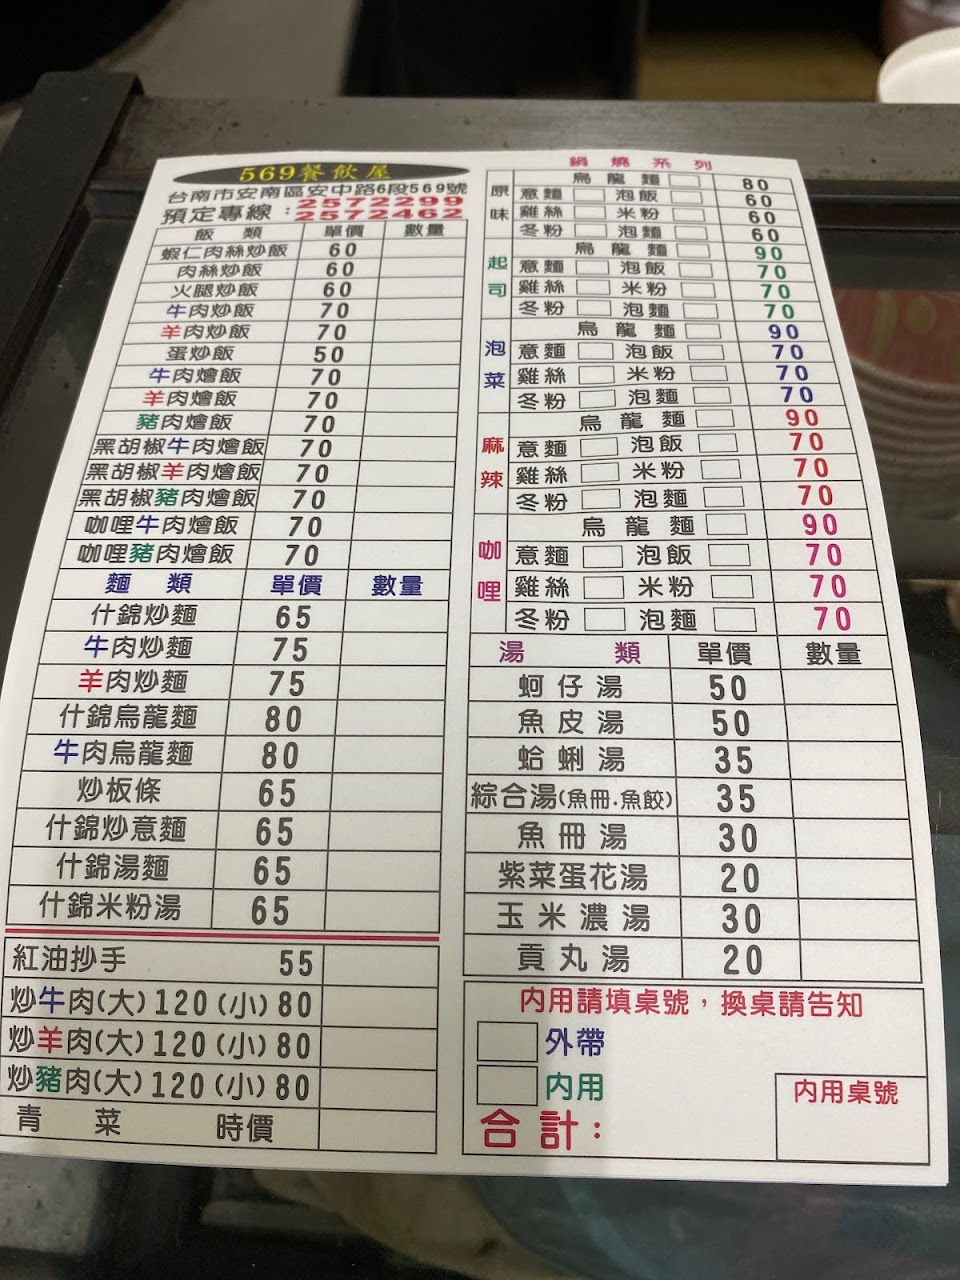 569餐飲屋
台南市安南區安中路6段569號
預定專線:2572299
2572462
飯 類 單價 數量
蝦仁肉絲炒飯 60
肉絲炒飯 60
火腿炒飯 60
牛肉炒飯 70
羊肉炒飯 70
蛋炒飯 50
牛肉燴飯 70
羊肉燴飯 70
豬肉燴飯 70
黑胡椒牛肉燴飯 70
黑胡椒羊肉燴飯 70
黑胡椒豬肉燴飯 70
咖哩牛肉燴飯 70
咖哩豬肉燴飯 70
麵 類 單價 數量
什錦炒麵 65
牛肉炒麵 75
羊肉炒麵 75
什錦烏龍麵 80
牛肉烏龍麵 80
炒板條 65
什錦炒意麵 65
什錦湯麵 65
什錦米粉湯 65
紅油抄手 55
炒牛肉(大)120(小)80
炒羊肉(大)120(小)80
炒豬肉(大)120(小)80
青 菜 時價
鍋燒系列
原味
烏龍麵 80
意麵 泡飯 60
雞絲 米粉 60
冬粉 泡麵 60
起司
烏龍麵 90
意麵 泡飯 70
雞絲 米粉 70
冬粉 泡麵 70
泡菜
烏龍麵 90
意麵 泡飯 70
雞絲 米粉 70
冬粉 泡麵 70
麻辣
烏龍麵 90
意麵 泡飯 70
雞絲 米粉 70
冬粉 泡麵 70
咖哩
烏龍麵 90
意麵 泡飯 70
雞絲 米粉 70
冬粉 泡麵 70
湯 類 單價 數量
蚵仔湯 50
魚皮湯 50
蛤蜊湯 35
綜合湯(魚冊.魚餃) 35
魚冊湯 30
紫菜蛋花湯 20
玉米濃湯 30
貢丸湯 20
內用請填桌號,換桌請告知
外帶
內用
內用桌號
合計: